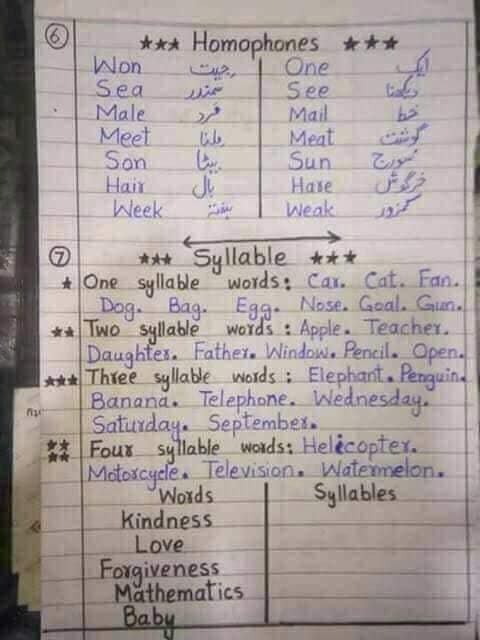 6 *** Homophones ***
Won جیت One ایک
Sea سمندر See دیکھنا
Male فرد Mail خط
Meet ملنا Meat گوشت
Son بیٹا Sun سورج
Hair بال Hare خرگوش
Week ہفتہ Weak کمزور
7 *** Syllable ***
* One syllable words: Car. Cat. Fan.
Dog. Bag. Egg. Nose. Goal. Gun.
** Two syllable words: Apple. Teacher.
Daughter. Father. Window. Pencil. Open.
*** Three syllable words: Elephant. Penguin.
Banana. Telephone. Wednesday.
Saturday. September.
**** Four syllable words: Helicopter.
Motorcycle. Television. Watermelon.
Words Syllables
Kindness
Love
Forgiveness
Mathematics
Baby